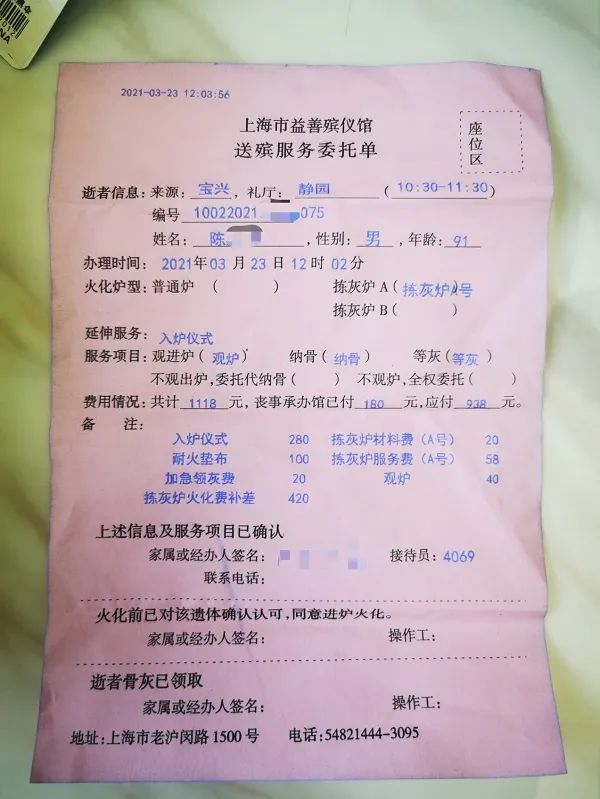 2021-03-23 12:03:56
上海市益善殡仪馆
送殡服务委托单
座位区
逝者信息:来源: 宝兴 ,礼厅: 静园 (10:30-11:30)
编号 10022021. 075
姓名: 陈 ,性别: 男 ,年龄: 91
办理时间: 2021年03月23日12时02分
火化炉型:普通炉 ( ) 拣灰炉A(拣灰炉A号)
拣灰炉B( )
延伸服务: 入炉仪式
服务项目:观进炉(观炉) 纳骨(纳骨) 等灰(等灰)
不观出炉,委托代纳骨( ) 不观炉,全权委托( )
费用情况:共计 1118 元,丧事承办馆已付 180 元,应付 938 元。
备 注:
入炉仪式 280 拣灰炉材料费(A号) 20
耐火垫布 100 拣灰炉服务费(A号) 58
加急领灰费 20 观炉 40
拣灰炉火化费补差 420
上述信息及服务项目已确认
家属或经办人签名: 接待员:4069
联系电话:
火化前已对该遗体确认认可,同意进炉火化。
家属或经办人签名: 操作工:
逝者骨灰已领取
家属或经办人签名: 操作工:
地址:上海市老沪闵路1500号 电话:54821444-3095